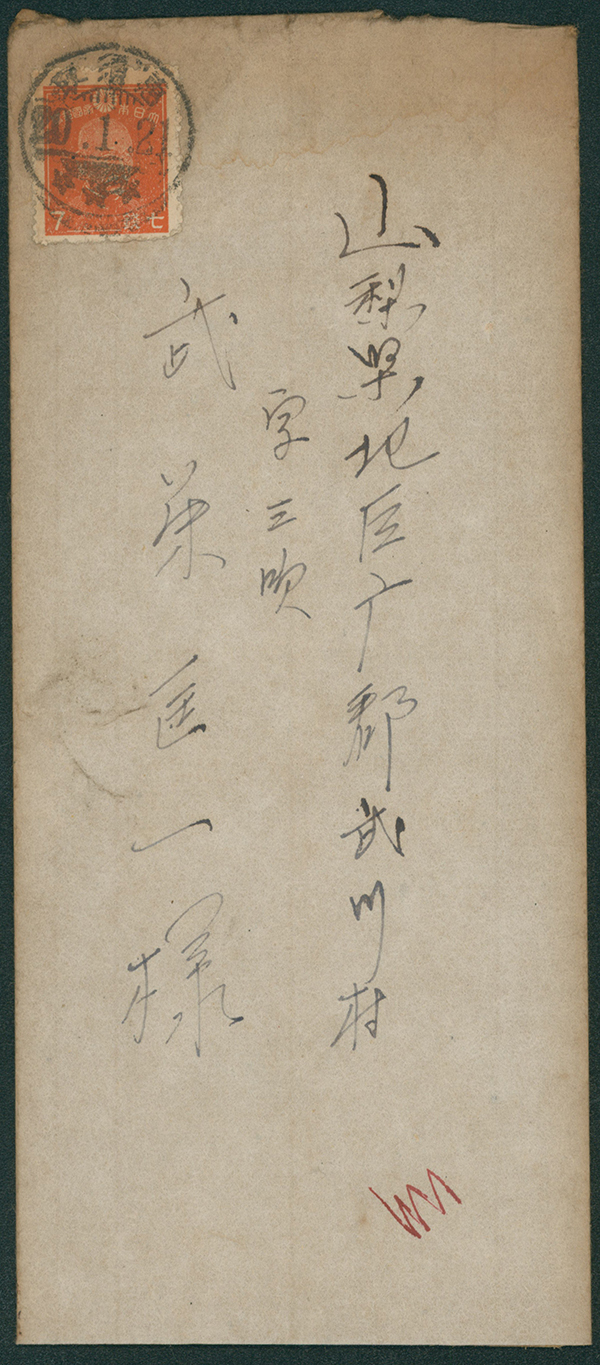 山梨県北巨广郡武川村
字三吹
武 匡一様
20.1.2
7 七錢